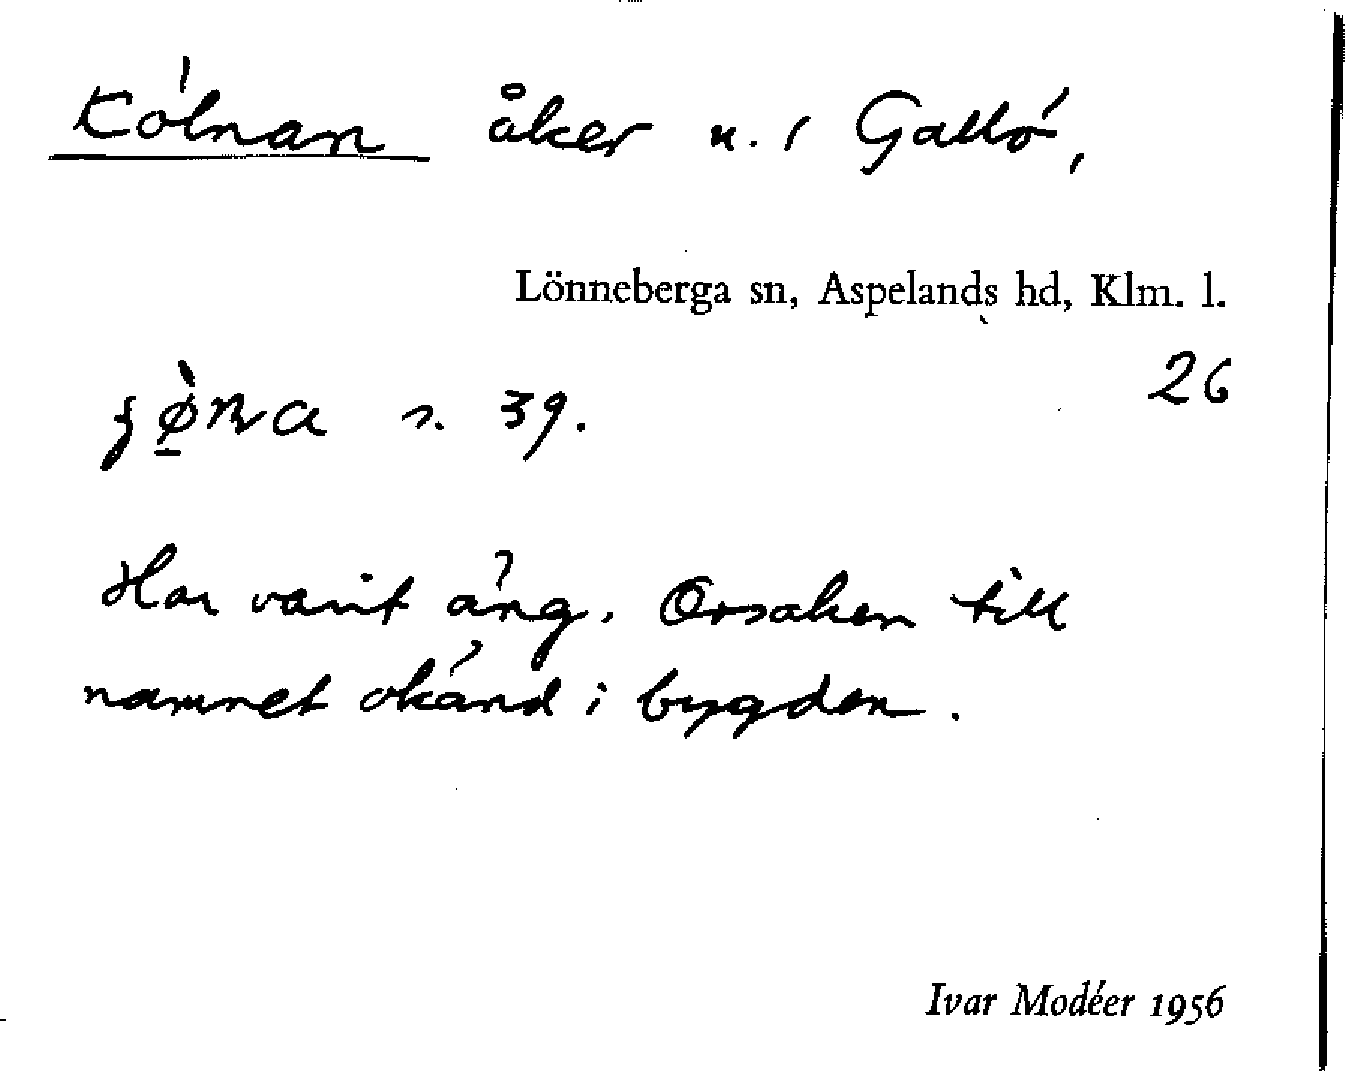 Kölnan åker u. i Gallö,
Lönneberga sn, Aspelands hd, Klm. l.
26
s. 39.
Har varit äng. Orsaken till
namnet okänd i bygden.
Ivar Modéer 1956